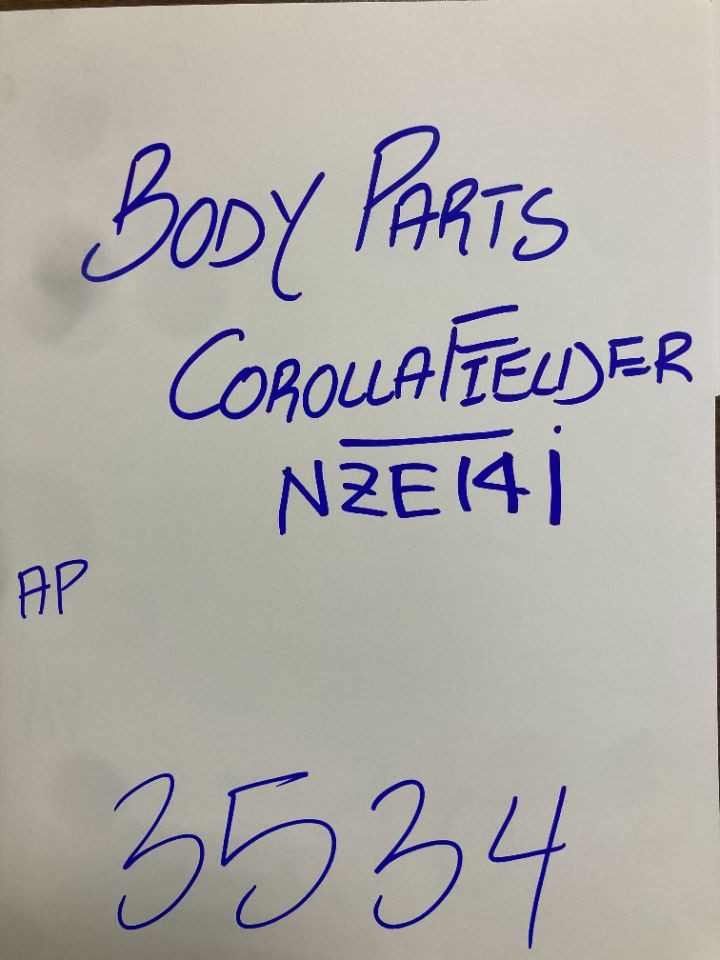 BODY PARTS
COROLLA FIELDER
NZE141
AP
3534